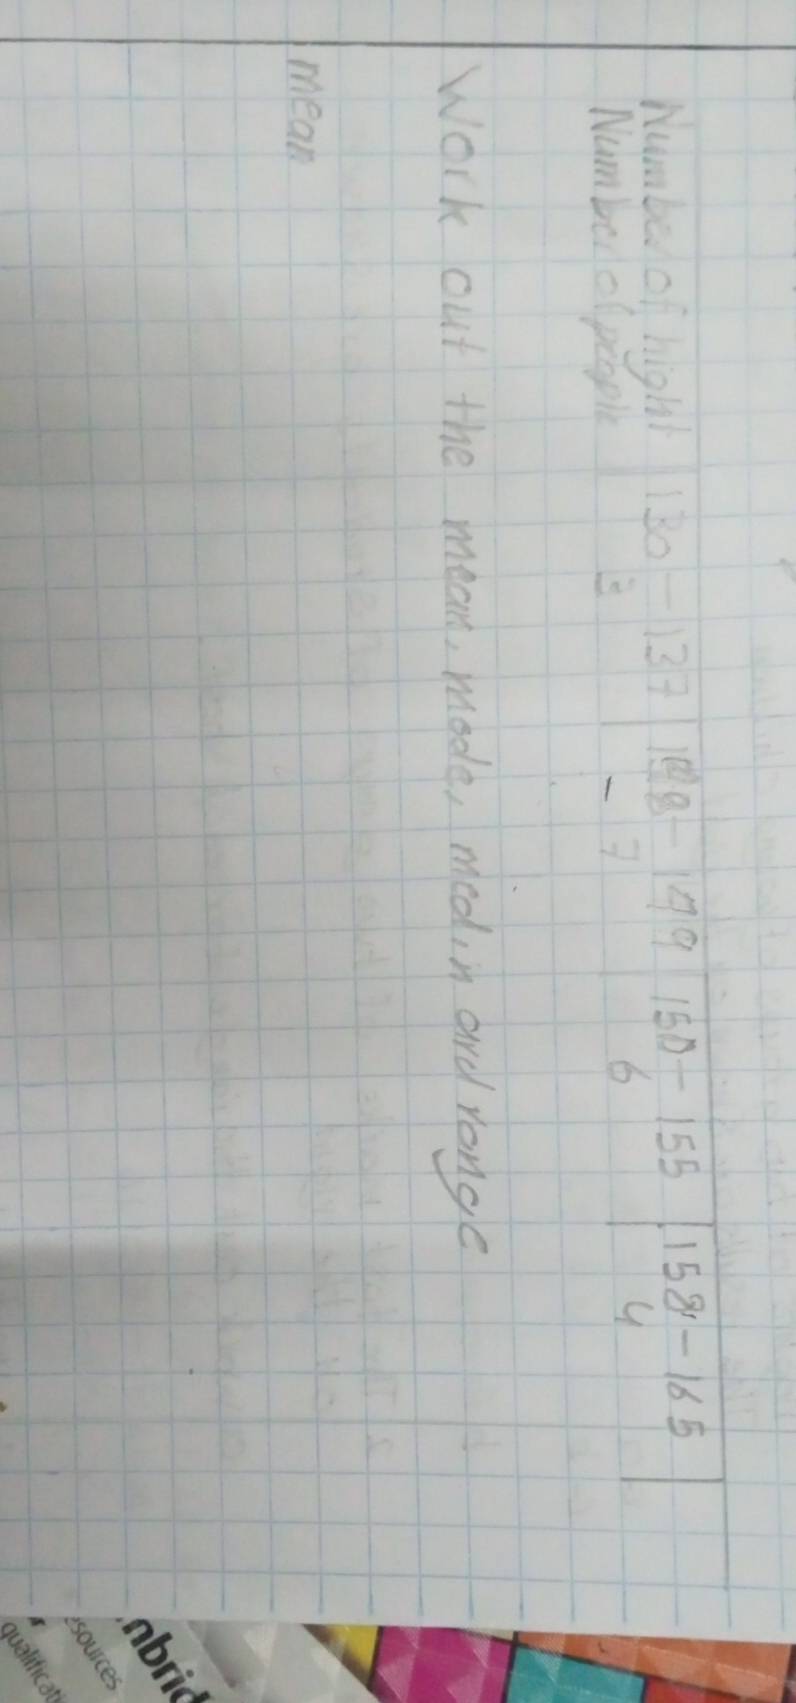 Number of hight | 130 - 137 | 148 - 149 | 150 - 155 | 158 - 165
Number of people | 3 | - 7 | 6 | 4
Work out the mean, mode, medin and range
mean
nbrid
sources
qualificati